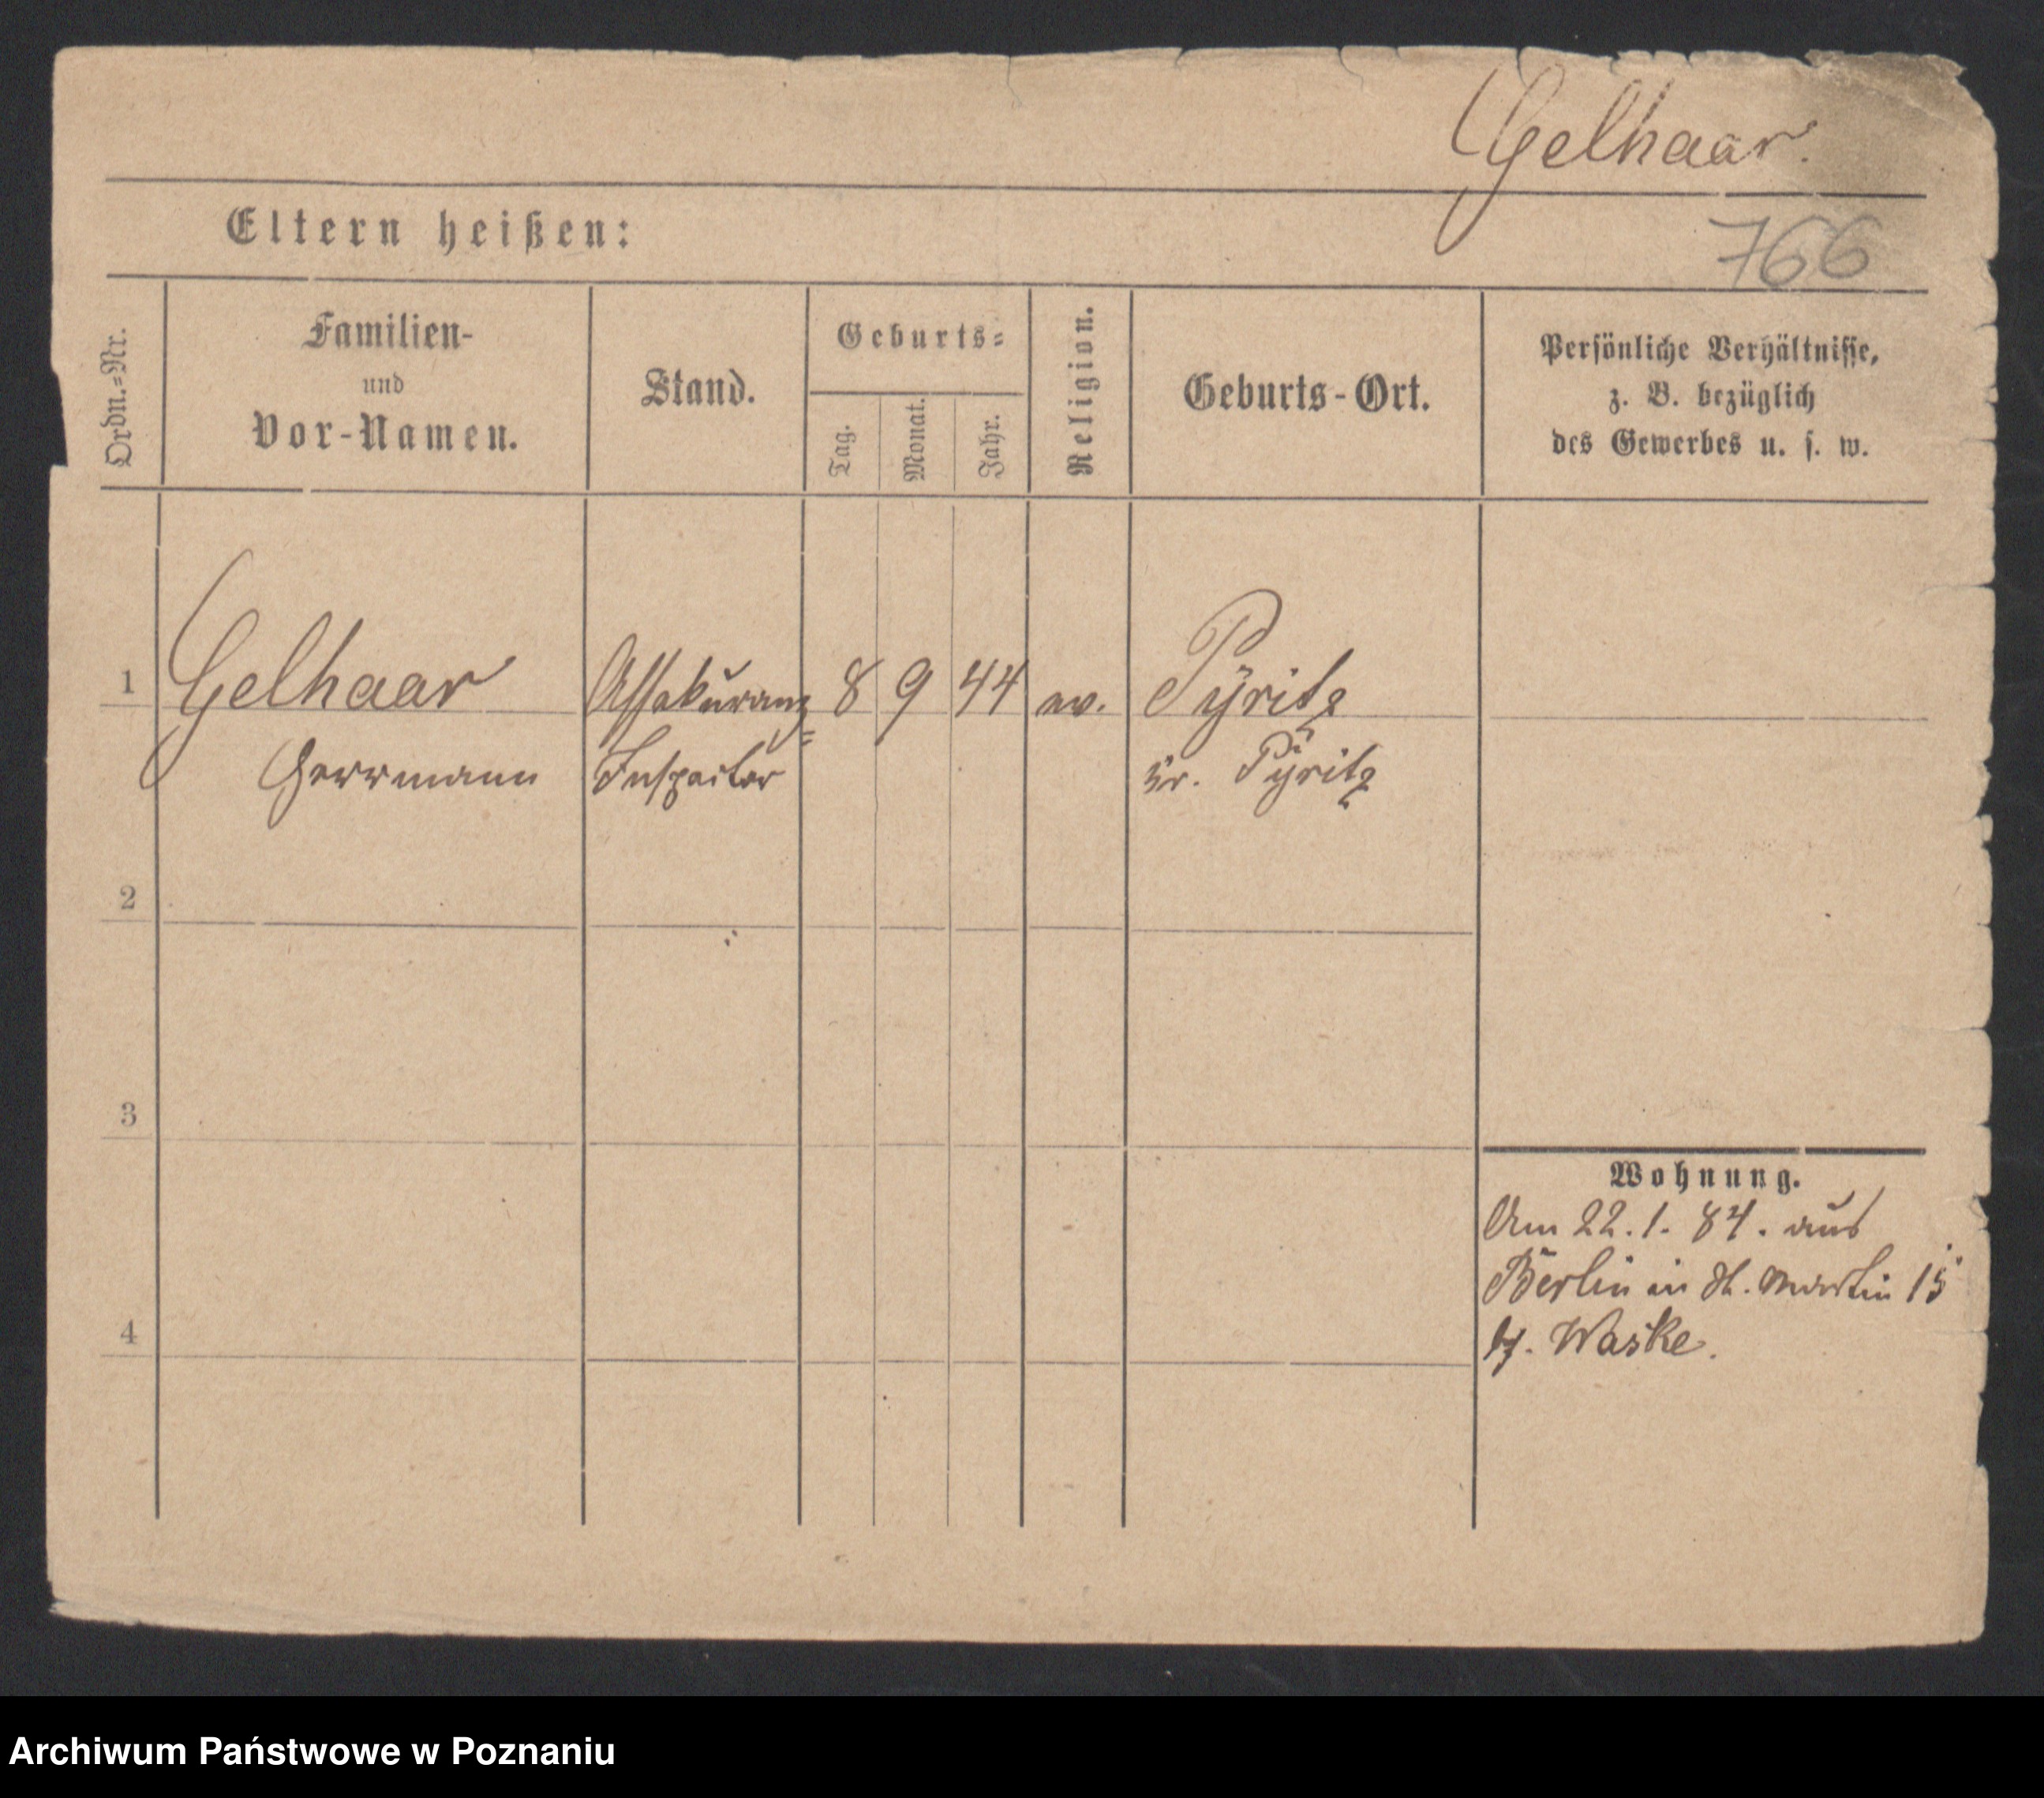 Gelhaar.
Eltern heißen:
766
Ordn.=Nr.
Familien-
und
Vor-Namen.
Stand.
Geburts=
Tag.
Monat.
Jahr.
Religion.
Geburts-Ort.
Persönliche Verhältnisse,
z. B. bezüglich
des Gewerbes u. s. w.
1 Gelhaar Assekuranz= 8 9 44 ev. Pyritz
Herrmann Inspector Kr. Pyritz
2
3
Wohnung.
Am 22. 1. 84. aus
Berlin in St. Martin 15
4
b/. Waske.
Archiwum Państwowe w Poznaniu